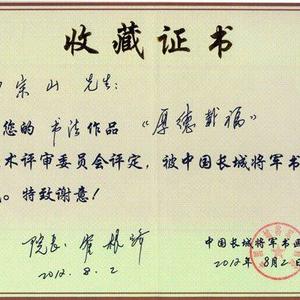 收藏证书
宗山 先生:
您的 书法作品 “厚德载福”
术评审委员会评定，被中国长城将军书
。特致谢意！
院长
中国长城将军书画
2012.8.2
2012年8月2日